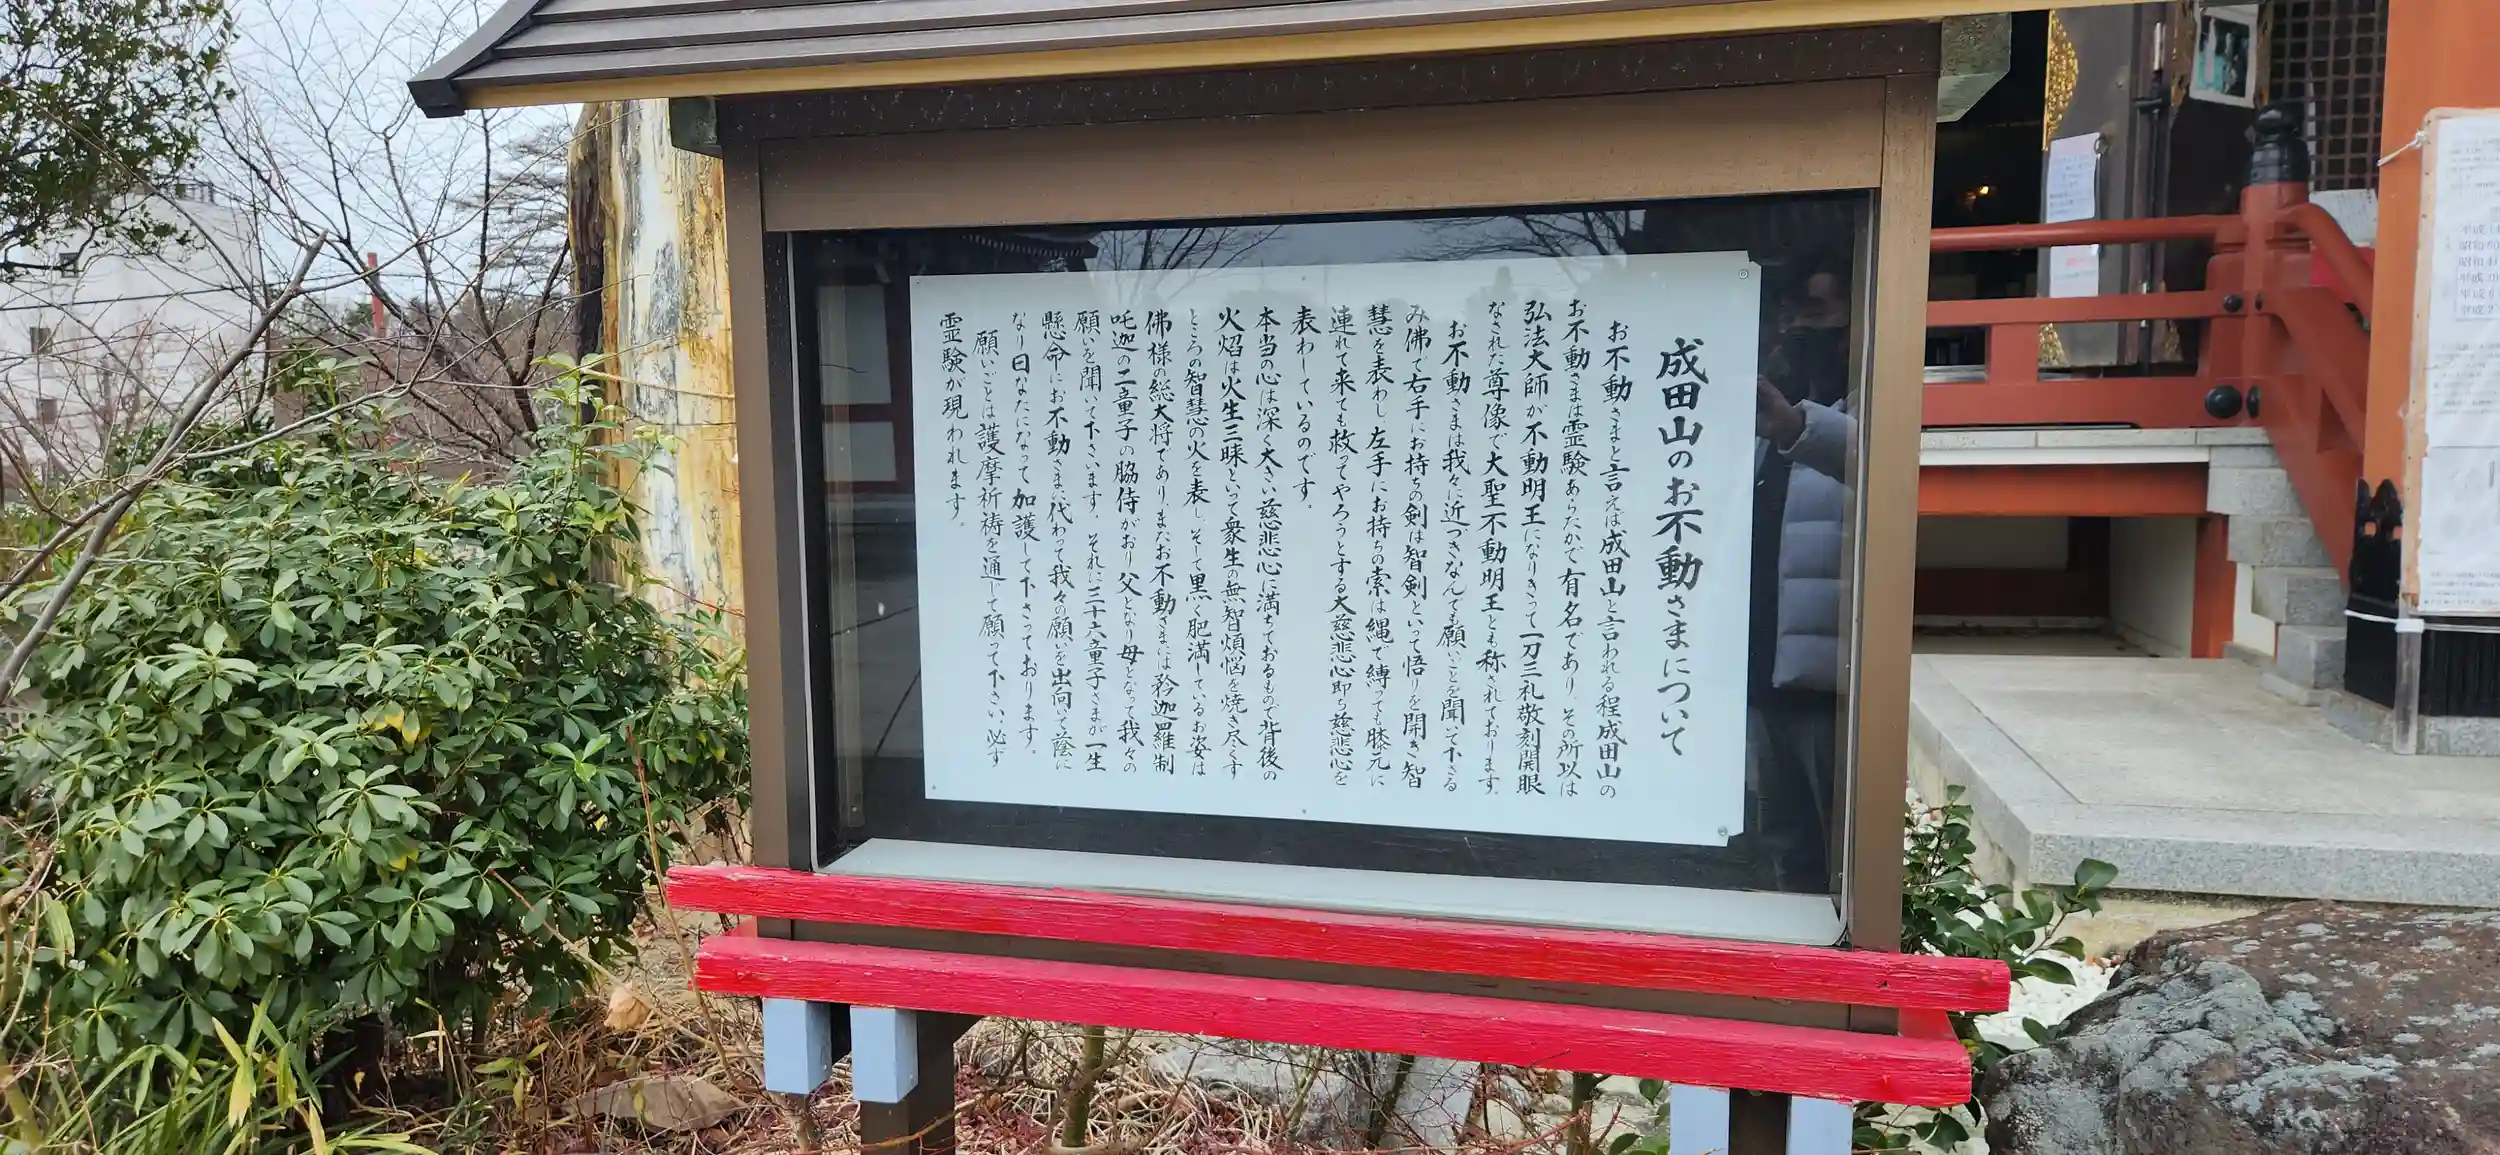 成田山のお不動さまについて
お不動さまと言えば成田山と言われる程成田山の
お不動さまは霊験あらたかで有名であり、その所以は
弘法大師が不動明王になりきって一刀三礼敬刻開眼
なされた尊像で大聖不動明王とも称されております。
お不動さまは我々に近づきなんでも願いごとを聞いて下さる
み佛で右手にお持ちの剣は智剣といって悟りを開き智
慧を表わし、左手にお持ちの索は縄で縛っても膝元に
連れて来ても救ってやろうとする大慈悲心即ち慈悲心を
表わしているのです。
本当の心は深く大きい慈悲心に満ちておるもので背後の
火焰は火生三昧といって衆生の無智煩悩を焼き尽くす
ところの智慧の火を表し、そして黒く肥満しているお姿は
佛様の総大将でありまたお不動さまには矜迦羅制
吒迦の二童子の脇侍がおり父となり母となって我々の
願いを聞いて下さいます。それに三十六童子さまが一生
懸命にお不動さまに代わって我々の願いを出向いて蔭に
なり日なたになって加護して下さっております。
願いごとは護摩祈祷を通じて願って下さい必ず
霊験が現われます。